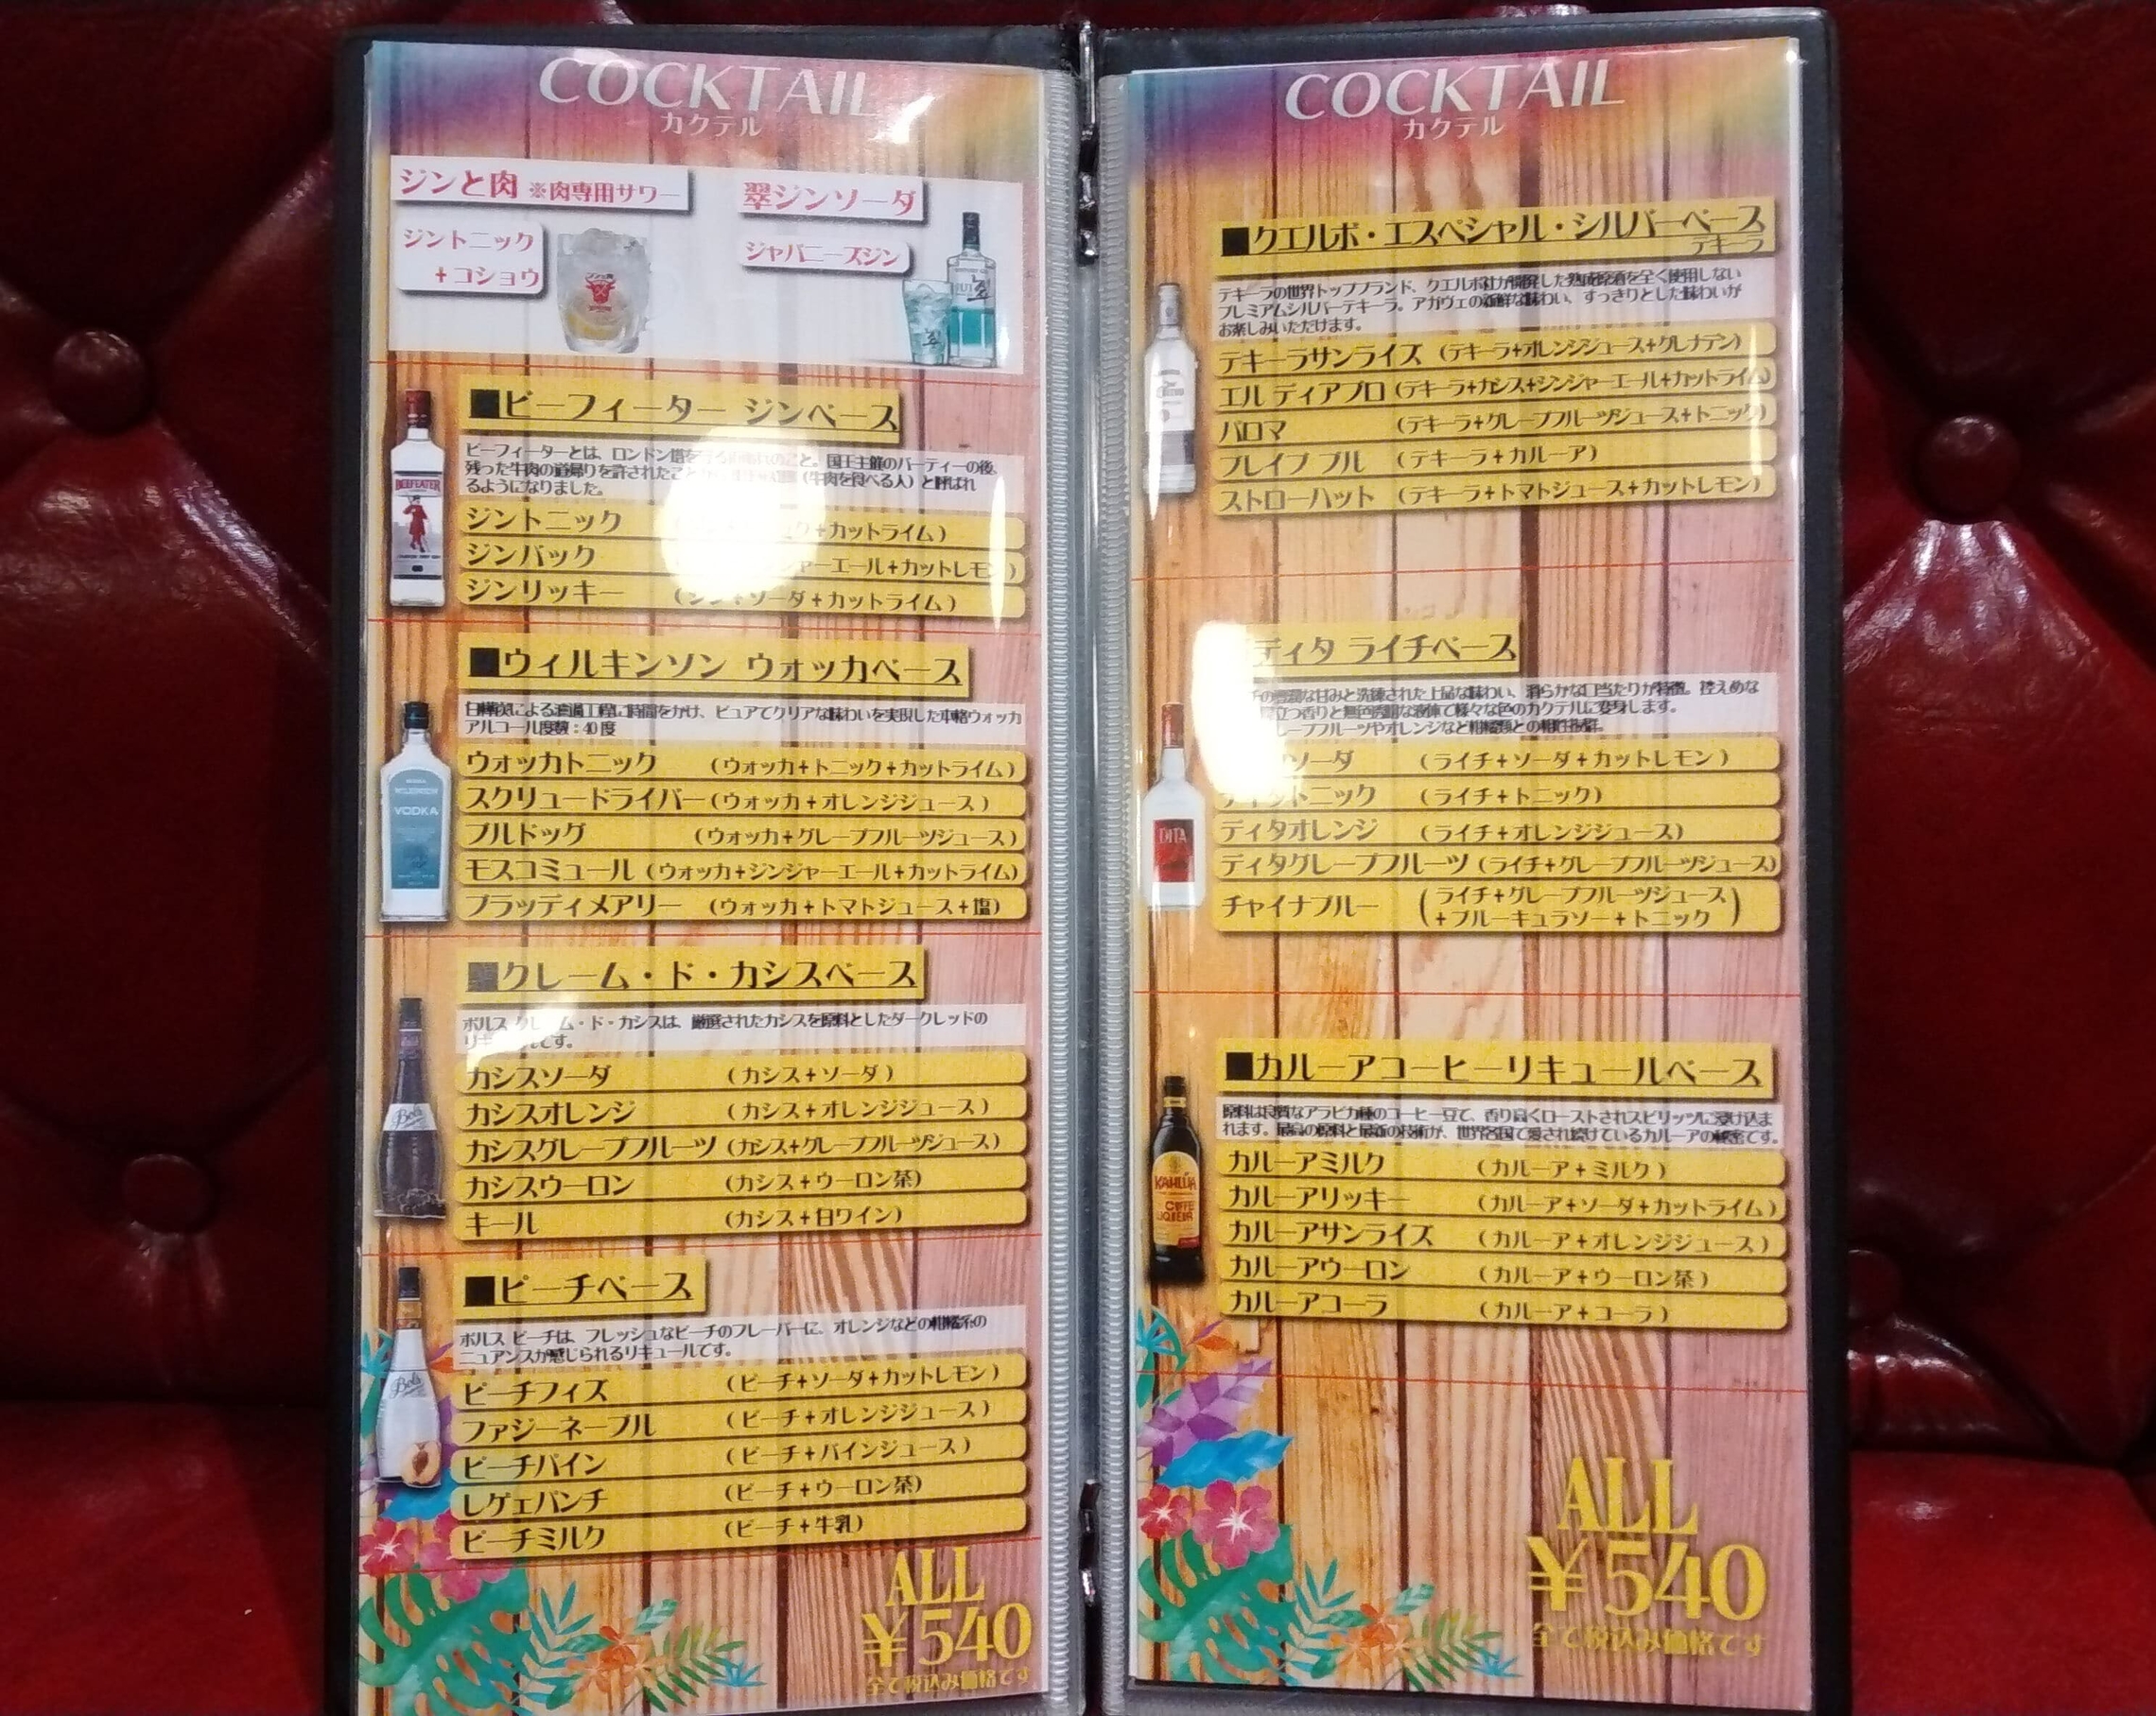 COCKTAIL
カクテル
ジンと肉 ※肉専用サワー
ジントニック
+コショウ
翠ジンソーダ
ジャパニーズジン
■ビーフィーター ジンベース
BEEFEATER
ビーフィーターとは、ロンドン塔を守る のこと。国王主催のパーティーの後、
残った牛肉の持帰りを許されたこと (牛肉を食べる人)と呼ばれ
るようになりました。
ジントニック +カットライム)
ジンバック ジャーエール+カットレモン)
ジンリッキー (ジン+ソーダ+カットライム)
■ウィルキンソン ウォッカベース
白樺炭による濾過工程に時間をかけ、ピュアでクリアな味わいを実現した本格ウォッカ
アルコール度数:40度
VODKA
ウォッカトニック (ウォッカ+トニック+カットライム)
スクリュードライバー(ウォッカ+オレンジジュース)
ブルドッグ (ウォッカ+グレープフルーツジュース)
モスコミュール (ウォッカ+ジンジャーエール+カットライム)
ブラッディメアリー (ウォッカ+トマトジュース+塩)
■クレーム・ド・カシスベース
ボルス クレーム・ド・カシスは、厳選されたカシスを原料としたダークレッドの
リキュールです。
Bols
カシスソーダ (カシス+ソーダ)
カシスオレンジ (カシス+オレンジジュース)
カシスグレープフルーツ (カシス+グレープフルーツジュース)
カシスウーロン (カシス+ウーロン茶)
キール (カシス+白ワイン)
■ピーチベース
ボルス ピーチは、フレッシュなピーチのフレーバーに、オレンジなどの柑橘系の
ニュアンスが感じられるリキュールです。
Bols
ピーチフィズ (ピーチ+ソーダ+カットレモン)
ファジーネーブル (ピーチ+オレンジジュース)
ピーチパイン (ピーチ+パインジュース)
レゲエパンチ (ピーチ+ウーロン茶)
ピーチミルク (ピーチ+牛乳)
ALL
¥540
全て税込み価格です
COCKTAIL
カクテル
■クエルボ・エスペシャル・シルバーベース
テキーラ
テキーラの世界トップブランド、クエルボ社が開発した熟成原酒を全く使用しない
プレミアムシルバーテキーラ。アガヴェの新鮮な味わい、すっきりとした味わいが
お楽しみいただけます。
テキーラサンライズ (テキーラ+オレンジジュース+グレナデン)
エル ディアブロ (テキーラ+カシス+ジンジャーエール+カットライム)
パロマ (テキーラ+グレープフルーツジュース+トニック)
ブレイブ ブル (テキーラ+カルーア)
ストローハット (テキーラ+トマトジュース+カットレモン)
ディタ ライチベース
チの豊潤な甘みと洗練された上品な味わい、滑らかな口当たりが特徴。控えめな
立つ香りと無色透明な液体で様々な色のカクテルに変身します。
レープフルーツやオレンジなど柑橘類との相性抜群。
DITA
ソーダ (ライチ+ソーダ+カットレモン)
ディタトニック (ライチ+トニック)
ディタオレンジ (ライチ+オレンジジュース)
ディタグレープフルーツ (ライチ+グレープフルーツジュース)
チャイナブルー (ライチ+グレープフルーツジュース
+ブルーキュラソー+トニック)
■カルーアコーヒーリキュールベース
原料は良質なアラビカ種のコーヒー豆で、香り高くローストされスピリッツに浸け込ま
れます。最高の原料と最新の技術が、世界各国で愛され続けているカルーアの秘密です。
KAHLÚA
カルーアミルク (カルーア+ミルク)
カルーアリッキー (カルーア+ソーダ+カットライム)
カルーアサンライズ (カルーア+オレンジジュース)
カルーアウーロン (カルーア+ウーロン茶)
カルーアコーラ (カルーア+コーラ)
ALL
¥540
全て税込み価格です